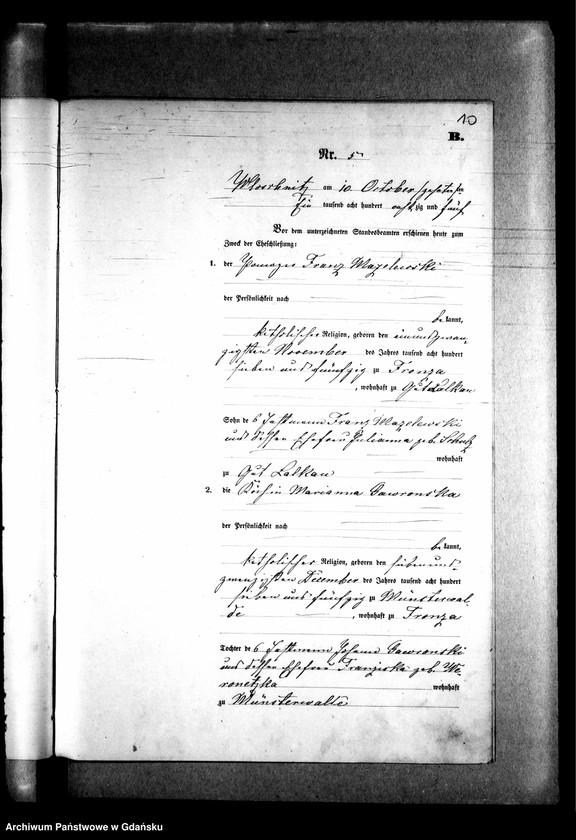 10
B.
Nr. 5
am 10 October
Ein tausend acht hundert achtzig und fünf
Vor dem unterzeichneten Standesbeamten erschienen heute zum
Zweck der Eheschließung:
1. der Franz Mazolewski
der Persönlichkeit nach
be kannt,
katholischer Religion, geboren den einundzwan
zigsten November des Jahres tausend acht hundert
sieben und fünfzig zu Fronza
, wohnhaft zu Gut Lalkau
Sohn des Franz Mazolewski
und dessen Ehefrau Julianna geb.
wohnhaft
zu Gut Lalkau
2. die Köchin Marianna Gawronska
der Persönlichkeit nach
be kannt,
katholischer Religion, geboren den sieben und
zwanzigsten December des Jahres tausend acht hundert
sieben und fünfzig zu Münsterwal-
de , wohnhaft zu Fronza
Tochter des Johann Gawronski
und dessen Ehefrau Franziska geb. We-
ronetzka wohnhaft
zu Münsterwalde
Archiwum Państwowe w Gdańsku